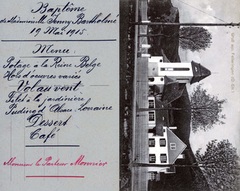 Baptême
de Mademoiselle Anny Bartholmé
19 Mai 1915
Menu:
Potage à la Reine Belge
Hors d'oeuvres variés
Vol au vent
Filet à la jardinière
Pouding d'Alsace Lorraine
Dessert
Café
Monsieur le Pasteur Meunier